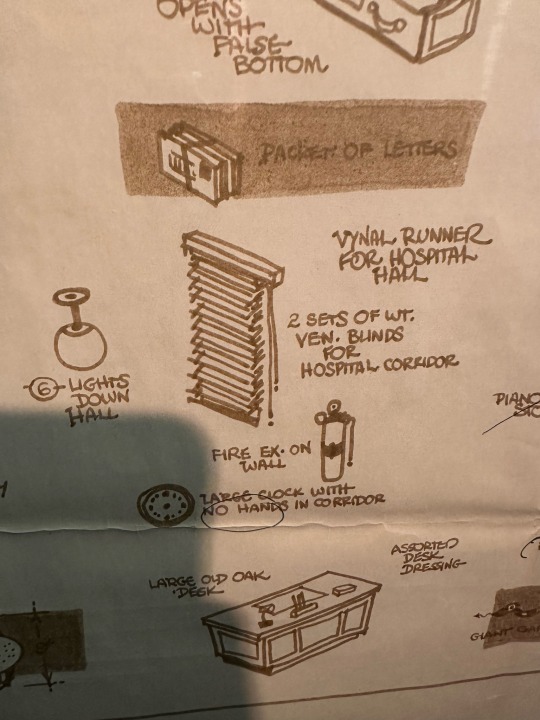 OPENS
WITH
FALSE
BOTTOM
PACKET OF LETTERS
VYNAL RUNNER
FOR HOSPITAL
HALL
2 SETS OF WT.
VEN. BLINDS
FOR
HOSPITAL CORRIDOR
6 LIGHTS
DOWN
HALL
PIANO
FIRE EX. ON
WALL
LARGE CLOCK WITH
NO HANDS IN CORRIDOR
ASSORTED
DESK
DRESSING
LARGE OLD OAK
DESK
GIANT